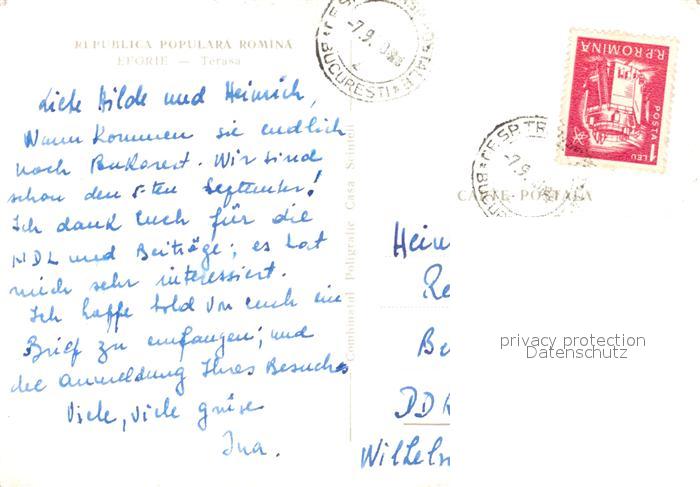 REPUBLICA POPULARĂ ROMÎNĂ
EFORIE — Terasa
Liebe Hilde und Heinrich,
Wann kommen sie endlich
nach Bukarest. Wir sind
schon den 5-ten September!
Ich dank Euch für die
NDL und Beiträge; es hat
mich sehr interessiert.
Ich hoffe bald von euch ein
Brief zu empfangen; und
die Anmeldung Ihres Besuches
Viele, viele grüse
Ina.
Combinatul Poligrafic Casa Scînteii
BUCUREȘTI
-7.9.
R.P.ROMINA
POSTA
1 LEU
-7.9.
CARTE POSTALA
Hein
Re
Be
DDR
Wilhelm
privacy protection
Datenschutz